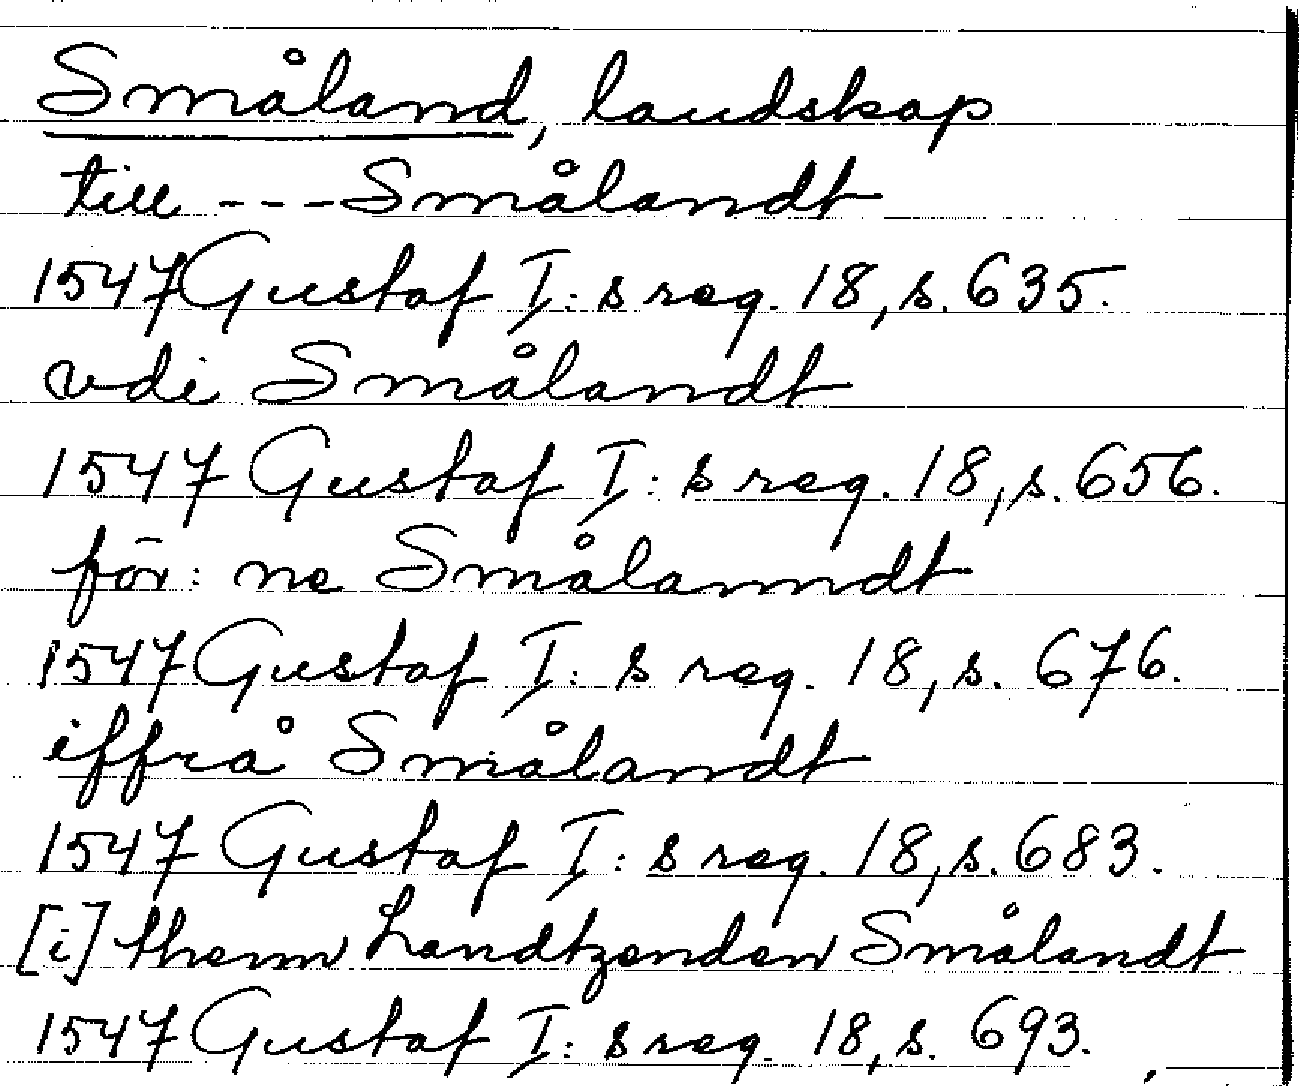 Småland, landskap
till --- Smålandt
1547 Gustaf I:s reg. 18, s. 635.
vdi Smålandt
1547 Gustaf I:s reg. 18, s. 656.
för: ne Smålanndt
1547 Gustaf I:s reg. 18, s. 676.
iffrå Smålandt
1547 Gustaf I:s reg. 18, s. 683.
[i] thenn Landtzenden Smålandt
1547 Gustaf I:s reg. 18, s. 693.